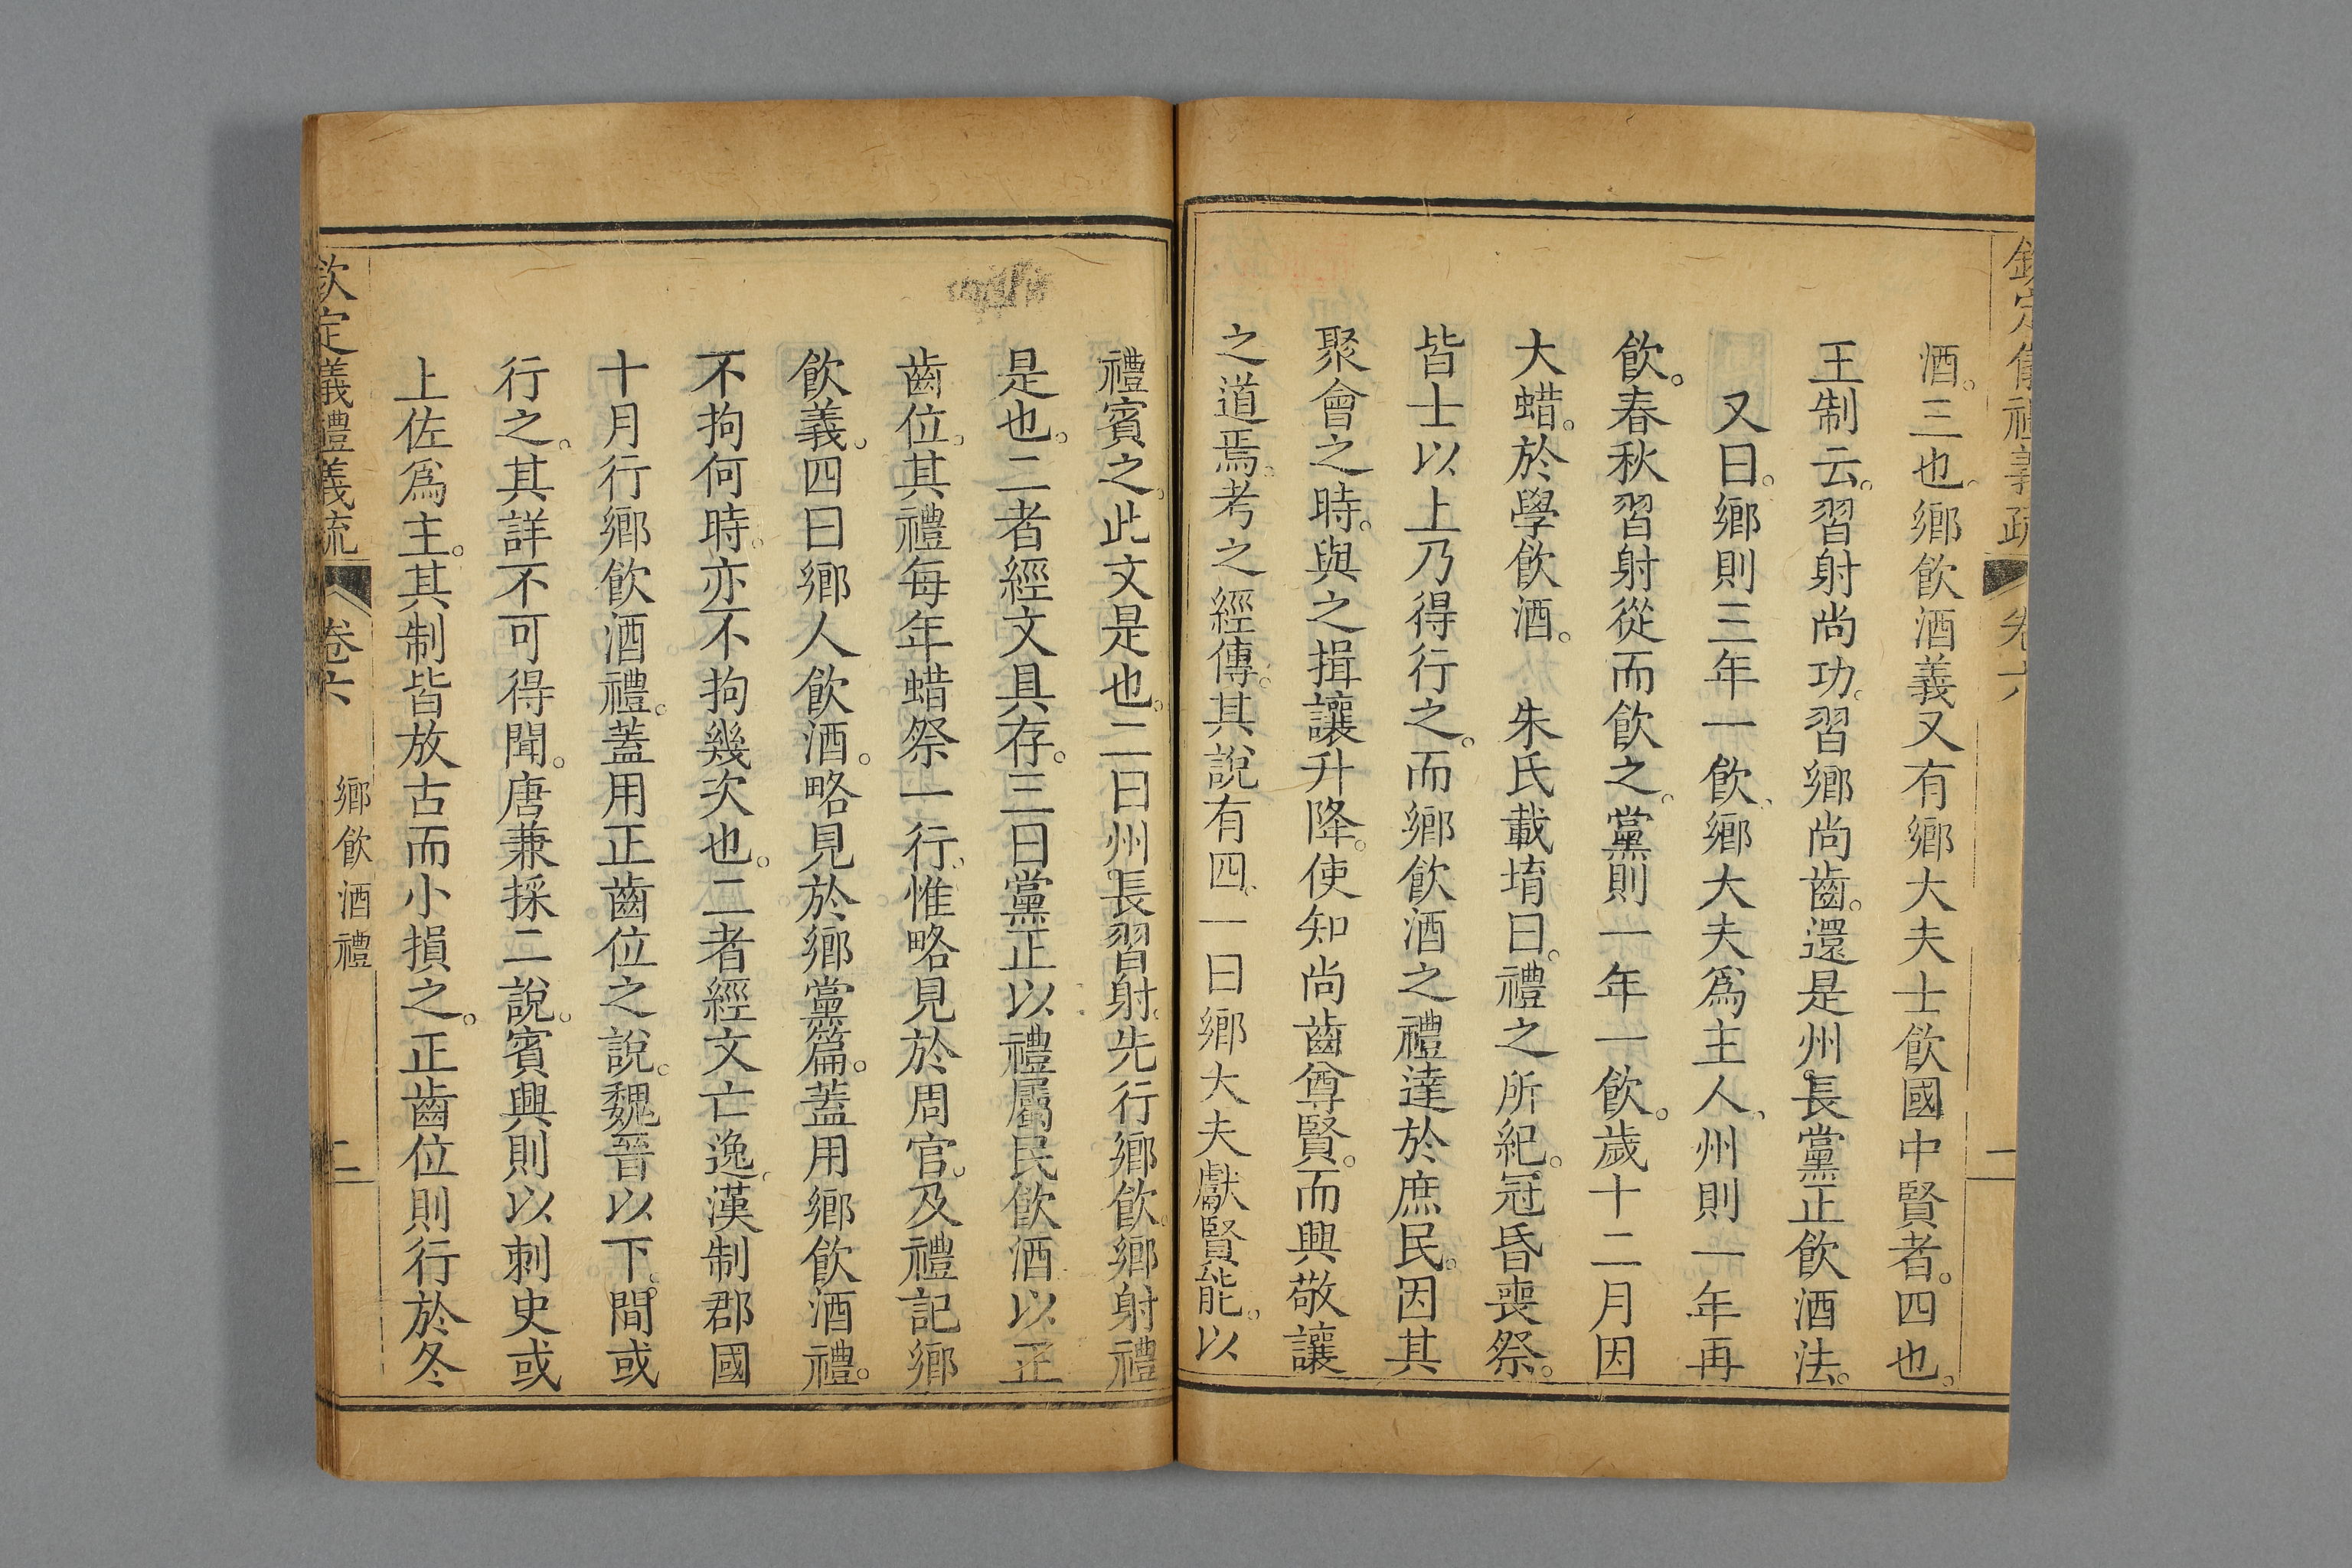 欽定儀禮義疏 卷六 一
酒。三也。鄉飲酒義又有鄉大夫士飲國中賢者。四也。
王制云。習射尚功。習鄉尚齒。還是州長黨正飲酒法。
又曰。鄉則三年一飲、鄉大夫爲主人、州則一年再
飲。春秋習射從而飲之。黨則一年一飲。歲十二月因
大蜡。於學飲酒。 朱氏載堉曰。禮之所紀。冠昏喪祭。
皆士以上乃得行之。而鄉飲酒之禮達於庶民。因其
聚會之時。與之揖讓升降。使知尚齒尊賢。而興敬讓
之道焉。考之經傳。其說有四。一曰鄉大夫獻賢能。以
禮賓之。此文是也。二曰州長習射。先行鄉飲。鄉射禮
是也。二者經文具存。三曰黨正以禮屬民飲酒以正
齒位。其禮每年蜡祭一行、惟略見於周官。及禮記鄉
飲義。四曰鄉人飲酒。略見於鄉黨篇。蓋用鄉飲酒禮。
不拘何時。亦不拘幾次也。二者經文亡逸。漢制郡國
十月行鄉飲酒禮。蓋用正齒位之說。魏晉以下。間或
行之。其詳不可得聞。唐兼採二說。賓興則以刺史或
上佐爲主。其制皆放古而小損之。正齒位則行於冬
欽定儀禮義疏 卷六 鄉飲酒禮 二